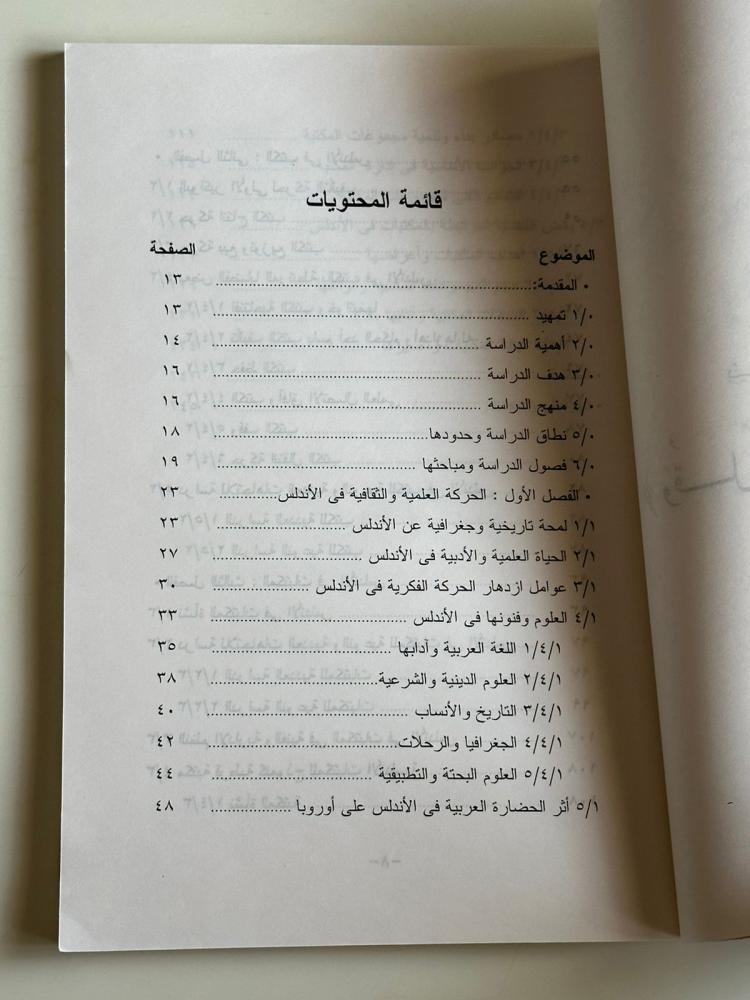 قائمة المحتويات
الموضوع الصفحة
• المقدمة: ١٣
١/٠ تمهيد ١٣
٢/٠ أهمية الدراسة ١٤
٣/٠ هدف الدراسة ١٦
٤/٠ منهج الدراسة ١٦
٥/٠ نطاق الدراسة وحدودها ١٨
٦/٠ فصول الدراسة ومباحثها ١٩
• الفصل الأول : الحركة العلمية والثقافية فى الأندلس ٢٣
١/١ لمحة تاريخية وجغرافية عن الأندلس ٢٣
٢/١ الحياة العلمية والأدبية فى الأندلس ٢٧
٣/١ عوامل ازدهار الحركة الفكرية فى الأندلس ٣٠
٤/١ العلوم وفنونها فى الأندلس ٣٣
١/٤/١ اللغة العربية وآدابها ٣٥
٢/٤/١ العلوم الدينية والشرعية ٣٨
٣/٤/١ التاريخ والأنساب ٤٠
٤/٤/١ الجغرافيا والرحلات ٤٢
٥/٤/١ العلوم البحتة والتطبيقية ٤٤
٥/١ أثر الحضارة العربية فى الأندلس على أوروبا ٤٨